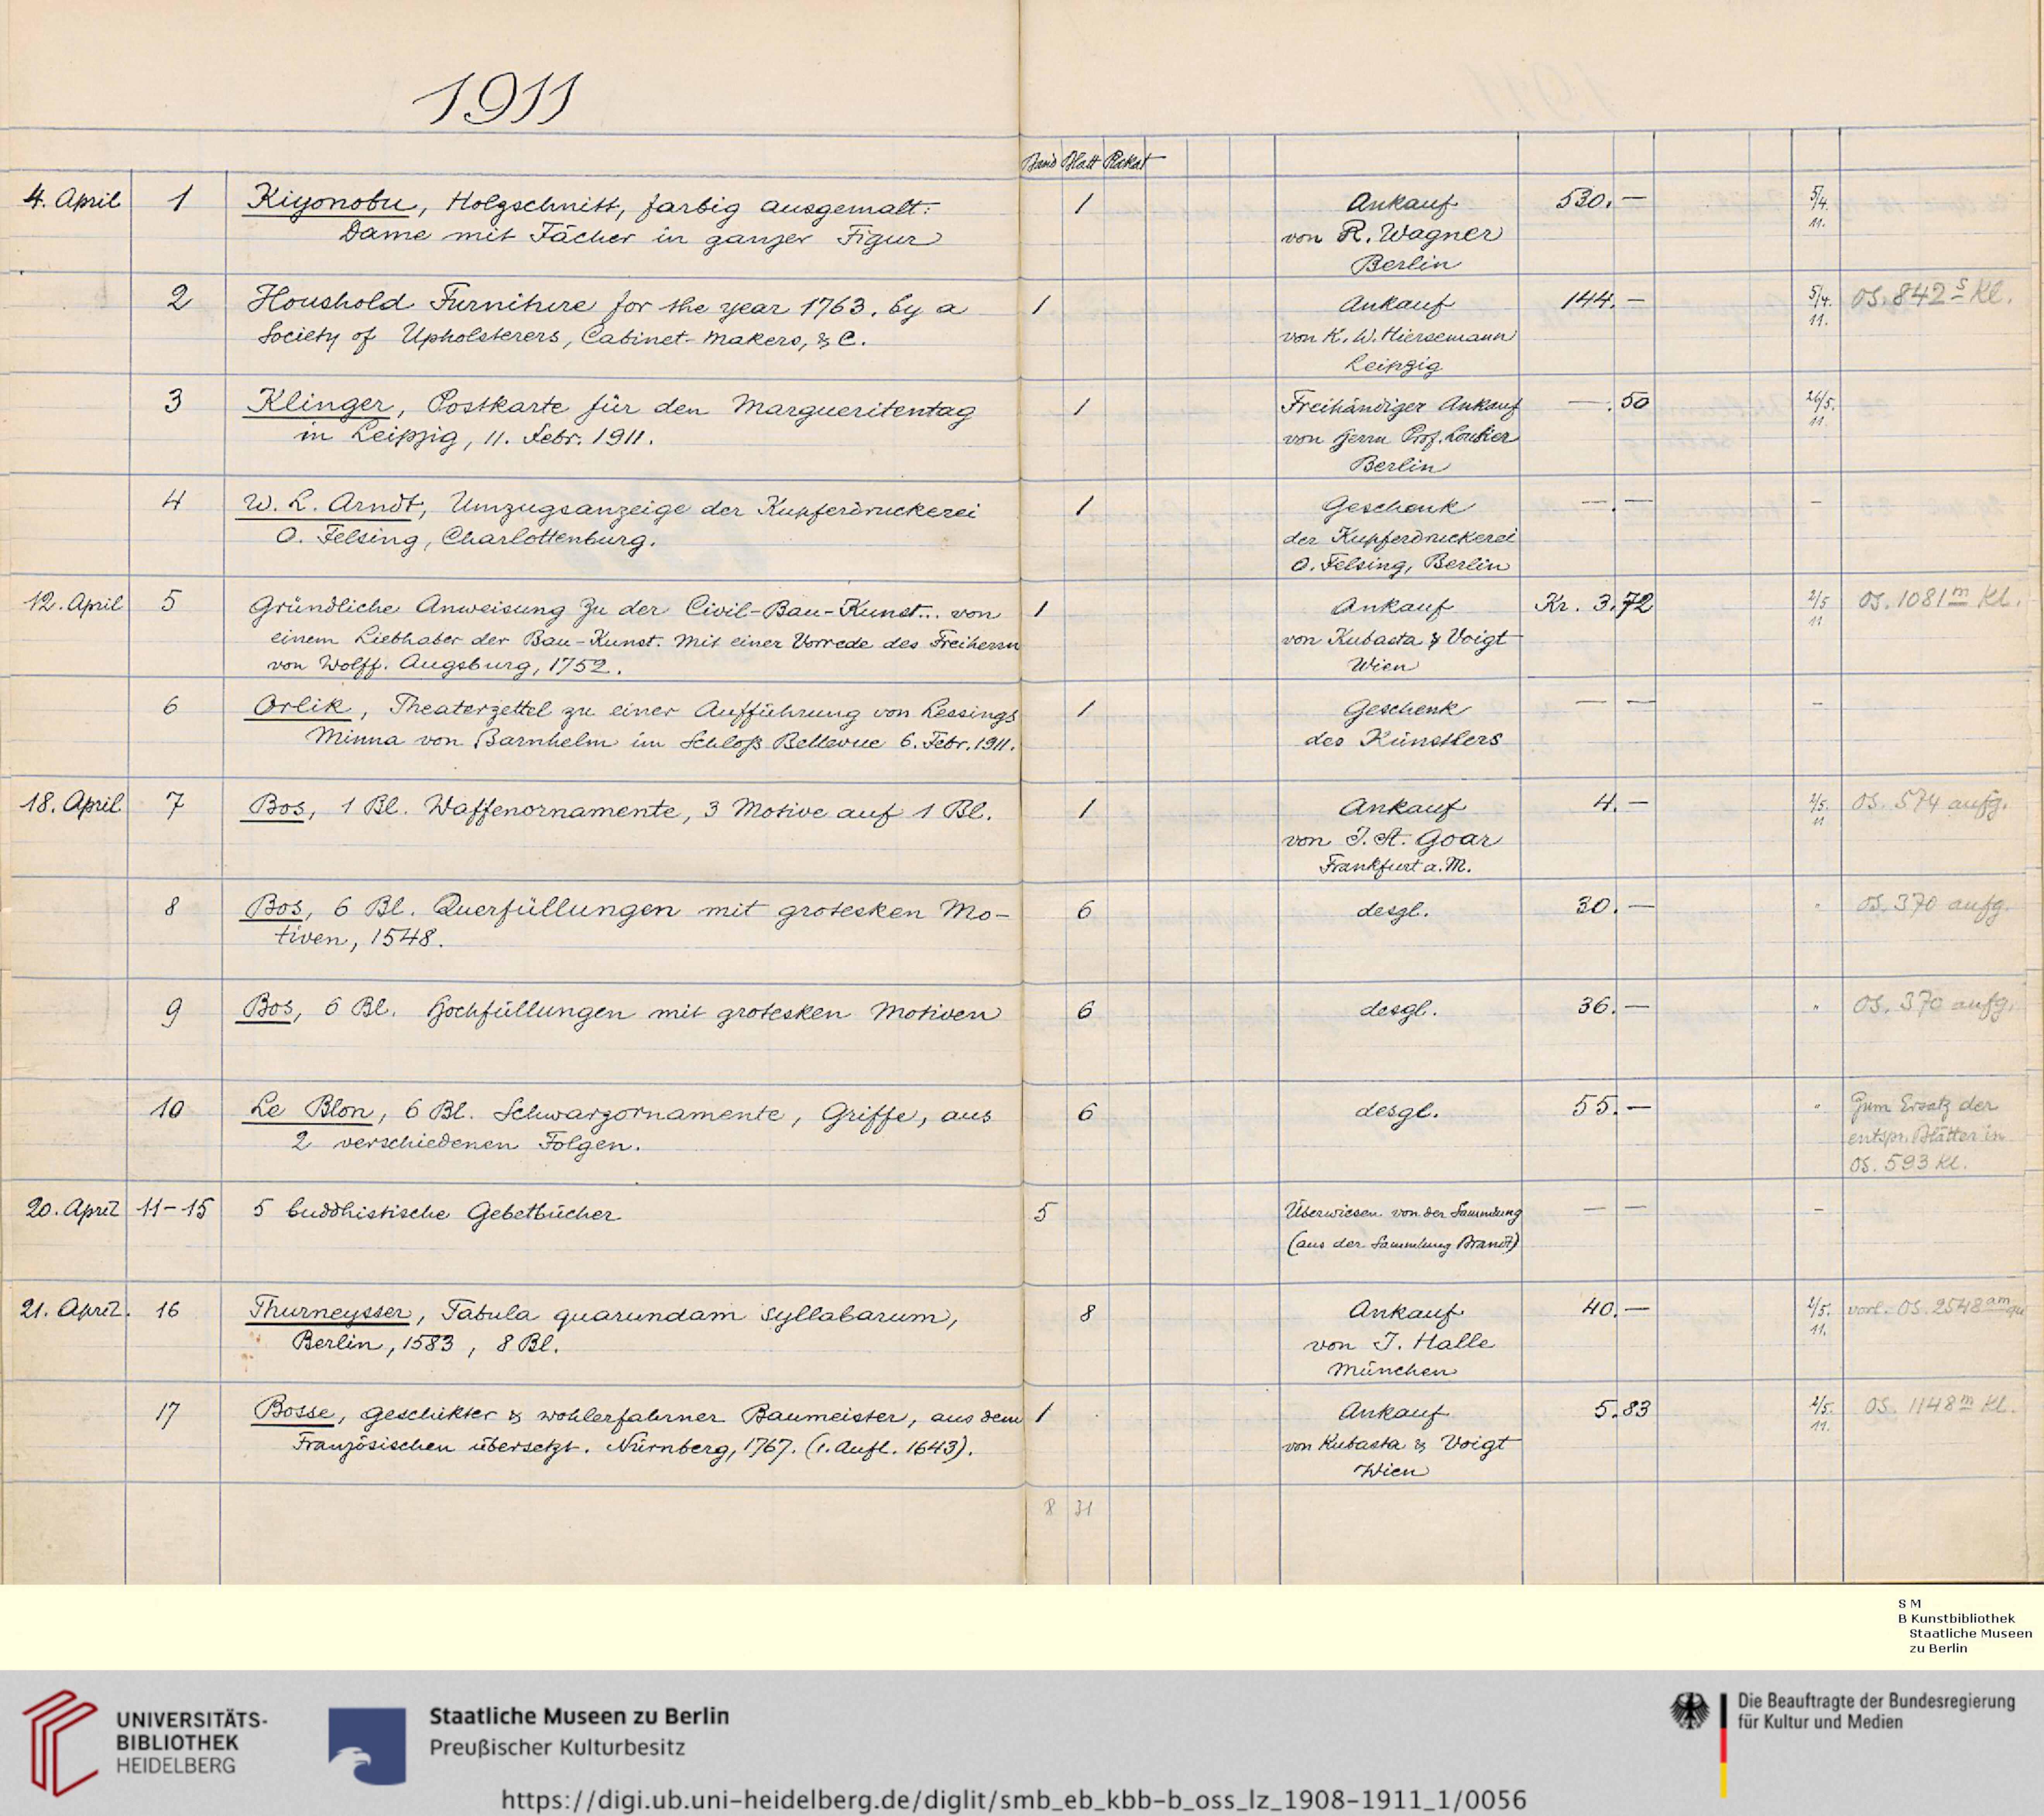 1911
Band Blatt Plakat
4. April 1 Kiyonobu, Holzschnitt, farbig ausgemalt: 1 Ankauf 530.— 5/4.
Dame mit Fächer in ganzer Figur von R. Wagner 11.
Berlin
2 Houshold Furniture for the year 1763. by a 1 Ankauf 144.— 5/4. OS. 842 s Kl.
Society of Upholsterers, Cabinet-Makers, & C. von K. W. Hiersemann 11.
Leipzig
3 Klinger, Postkarte für den Margueritentag 1 Freihändiger Ankauf —.50 26/5.
in Leipzig, 11. Febr. 1911. von Herrn Prof. Loubier 11.
Berlin
4 W. L. Arndt, Umzugsanzeige der Kupferdruckerei 1 Geschenk —.— –
O. Felsing, Charlottenburg. der Kupferdruckerei
O. Felsing, Berlin
12. April 5 Gründliche Anweisung zu der Civil-Bau-Kunst... von 1 Ankauf Kr. 3.72 2/5 OS. 1081 m Kl.
einem Liebhaber der Bau-Kunst. Mit einer Vorrede des Freiherrn von Kubasta & Voigt 11
von Wolff. Augsburg, 1752. Wien
6 Orlik, Theaterzettel zu einer Aufführung von Lessings 1 Geschenk — — –
Minna von Barnhelm im Schloß Bellevue 6. Febr. 1911. des Künstlers
18. April 7 Bos, 1 Bl. Waffenornamente, 3 Motive auf 1 Bl. 1 Ankauf 4.— 2/5. OS. 574 aufg.
von J. St. Goar 11
Frankfurt a. M.
8 Bos, 6 Bl. Querfüllungen mit grotesken Mo- 6 desgl. 30.— " OS. 370 aufg.
tiven, 1548.
9 Bos, 6 Bl. Hochfüllungen mit grotesken Motiven 6 desgl. 36.— " OS. 370 aufg.
10 Le Blon, 6 Bl. Schwarzornamente, Griffe, aus 6 desgl. 55.— " Zum Ersatz der
2 verschiedenen Folgen. entspr. Blätter in
OS. 593 Kl.
20. April 11–15 5 buddhistische Gebetbücher 5 Überwiesen von der Sammlung — — –
(aus der Sammlung Brandt)
21. April. 16 Thurneysser, Tabula quarundam syllabarum, 8 Ankauf 40.— 2/5. vorl. OS. 2548 am qu
Berlin, 1583, 8 Bl. von J. Halle 11.
München
17 Bosse, geschickter & wohlerfahrner Baumeister, aus dem 1 Ankauf 5.83 2/5. OS. 1148 m Kl.
Französischen übersetzt. Nürnberg, 1767. (1. Aufl. 1643). von Kubasta & Voigt 11.
Wien
8 31
S M
B Kunstbibliothek
Staatliche Museen
zu Berlin
UNIVERSITÄTS-
BIBLIOTHEK
HEIDELBERG
Staatliche Museen zu Berlin
Preußischer Kulturbesitz
Die Beauftragte der Bundesregierung
für Kultur und Medien
https://digi.ub.uni-heidelberg.de/diglit/smb_eb_kbb-b_oss_lz_1908-1911_1/0056